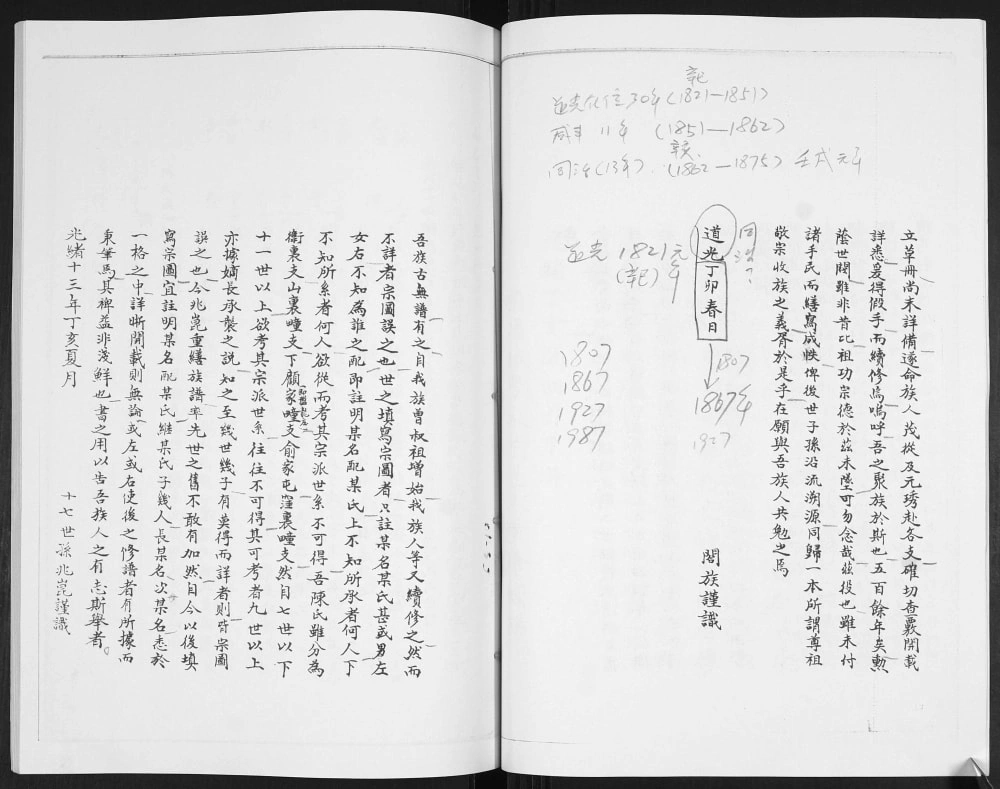 辛巳
道光在位30年(1821—1851)
咸丰 11年 (1851—1862)
辛亥
同治(13年). (1862—1875) 壬戌元年
立草冊尚未詳備遂命族人茂從及元琇赴各支確切查覈開載
詳悉爰得假手而續修焉嗚呼吾之聚族於斯也五百餘年矣勲
蔭世閥雖非昔比祖功宗德於茲未墜可勿念哉茲役也雖未付
諸手民而繕寫成帙俾後世子孫沿流溯源同歸一本所謂尊祖
敬宗收族之義胥於是乎在願與吾族人共勉之焉
闔族謹識
同治?
道光丁卯春日
1807
1867年
1927
道光 1821元年
(辛巳)
1807
1867
1927
1987
吾族古無譜有之自我族曾叔祖增始我族人等又續修之然而
不詳者宗圖誤之也世之填寫宗圖者只註某名某氏甚或男左
女右不知為誰之配即註明某名配某氏上不知所承者何人下
不知所系者何人欲從而考其宗派世系不可得吾陳氏雖分為
衛裏支山裏疃支下顧家疃支俞家屯窪裏疃支然自七世以下
十一世以上欲考其宗派世系往往不可得其可考者九世以上
亦據嫡長承襲之說知之至幾世幾子有莫得而詳者則皆宗圖
誤之也今兆崑重繕族譜率先世之舊不敢有加然自今以後填
寫宗圖宜註明某名配某氏継某氏子幾人長某名次某名悉於
一格之中詳晰開載則無論或左或右使後之修譜者有所據而
秉筆焉其裨益非淺鮮也書之用以告吾族人之有志斯舉者。
光緒十三年丁亥夏月
十七世孫兆崑謹識